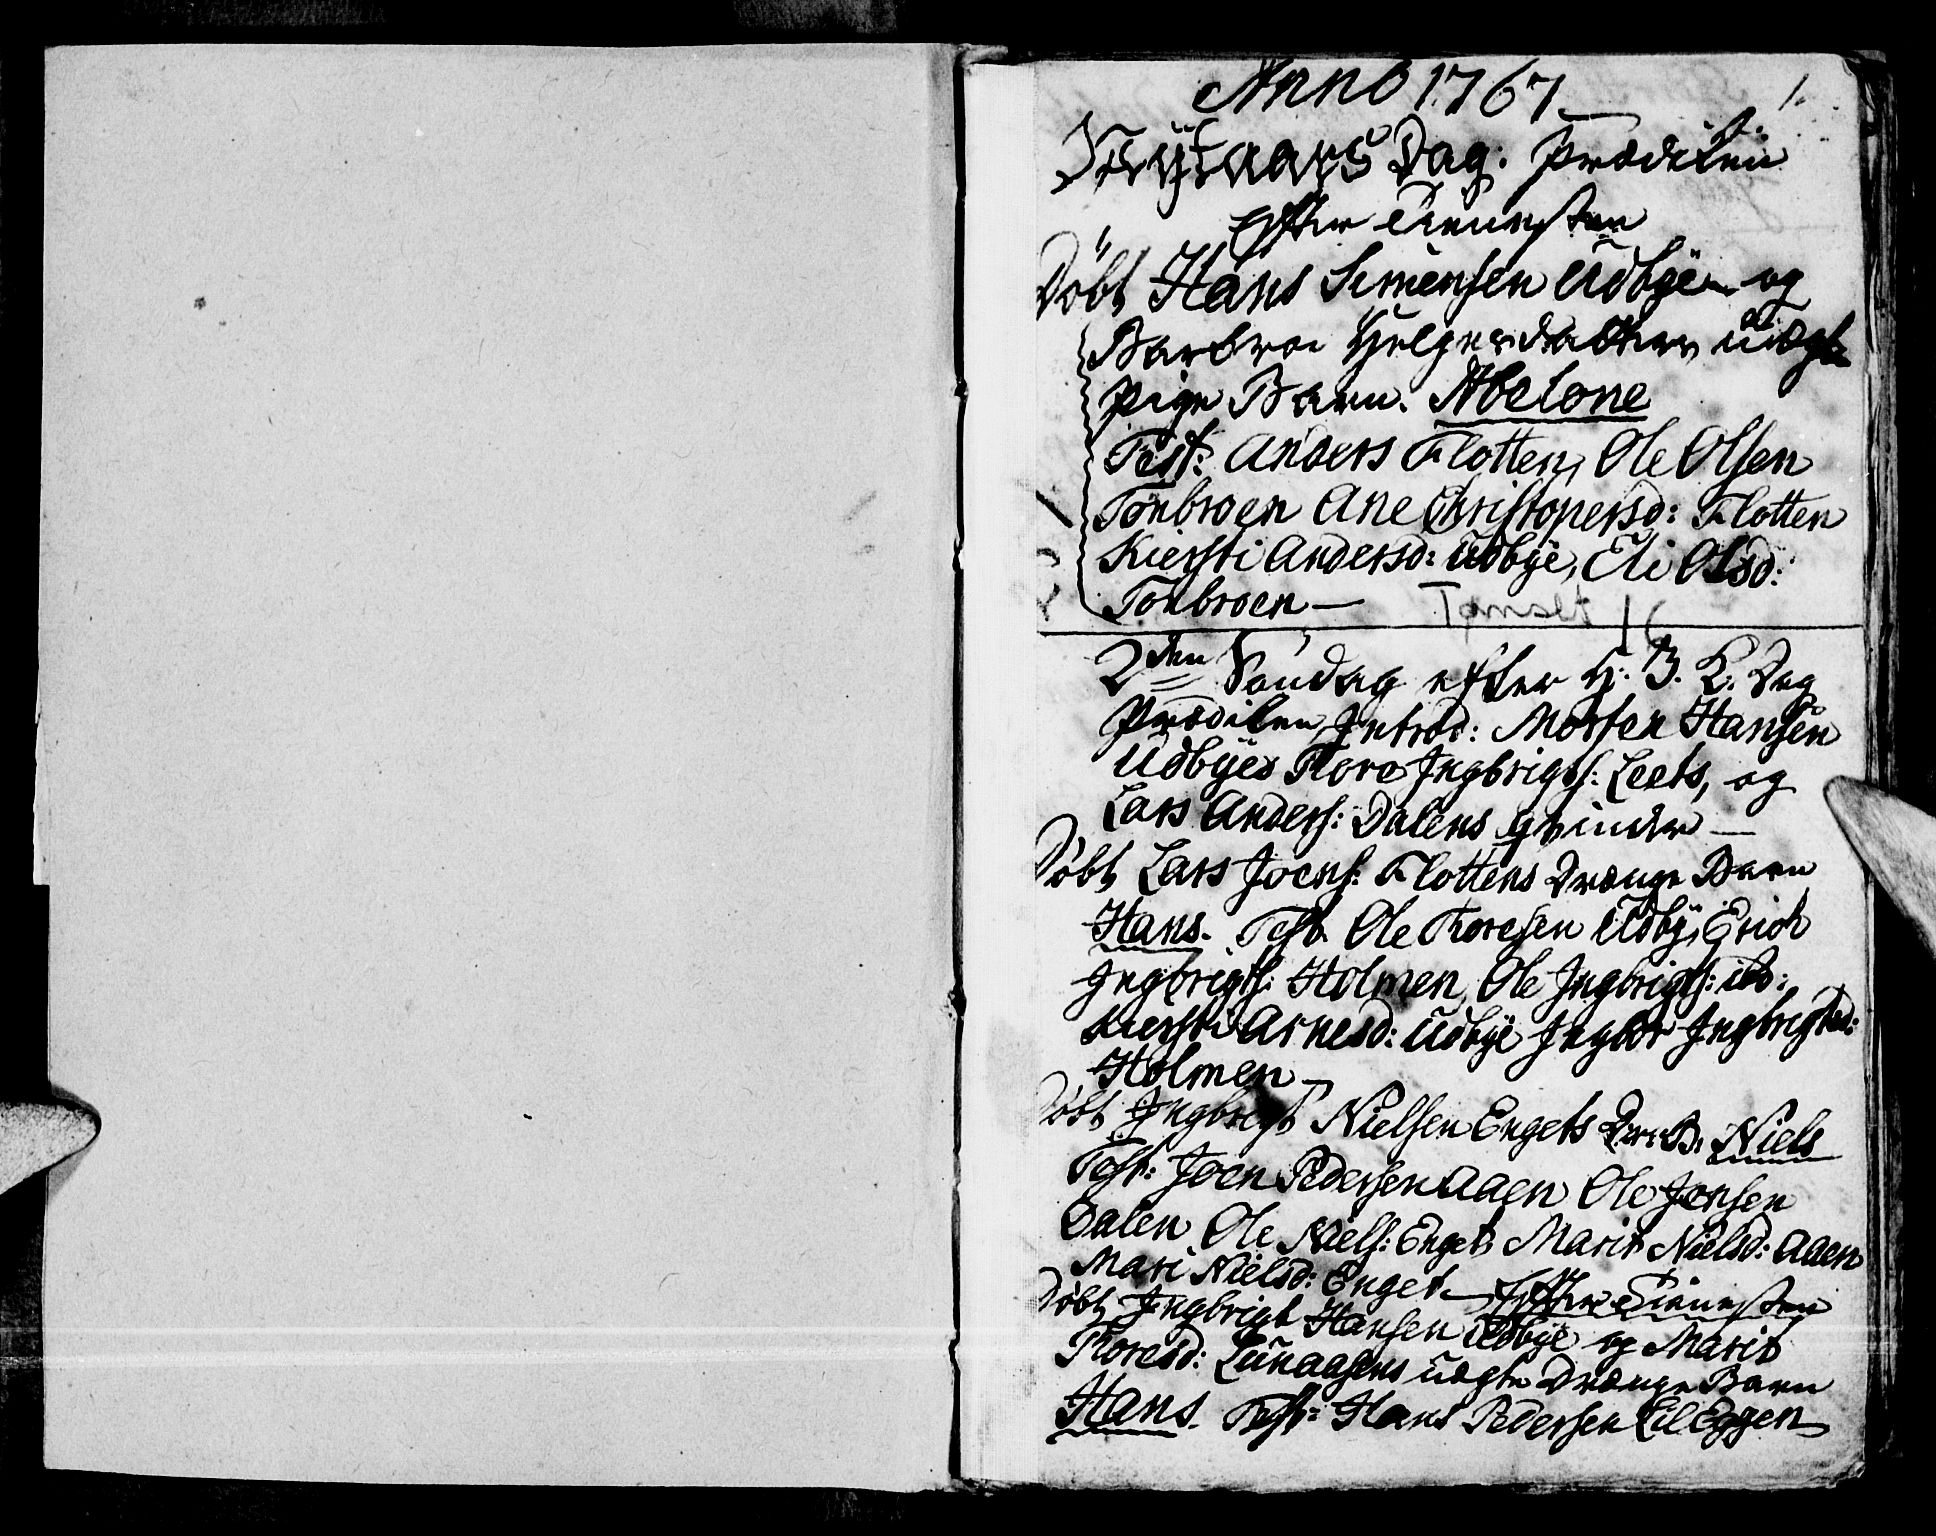 Anno 1767
1.
Nÿtaars Dag: Prædiken
Efter Tienesten
Döbt Hans Simensen Udbÿe og
Barbroe Helgesdatters uægte
Pige Barn. Abelone
Test: Anders Flotten, Ole Olsen
Tonbroen Ane Christopersd: Flotten
Kiersti Andersd: Udbÿe, Eli Olsd:
Tonbroen —
Tønset
2den Söndag efter H. 3. K. Dag
Prædiken Introd: Morten Hansen
Udbÿes Tore Ingbrigts: Leets, og
Lars Anders: Dalens qvinder —
Döbt Lars Joens: Flottens Drænge Barn
Hans. Test. Ole Toresen Udbÿ, Erich
Ingbrigts: Holmen, Ole Ingbrigts: ib:
Kiersti Arnesd: Udbÿe Ingbor Ingbrigtsd:
Holmen —
Döbt Ingbrigt Nielsen Engets Dr: B: Niels
Test: Joen Pedersen Aaen Ole Jonsen
Dalen Ole Niels: Enget, Marit Nielsd: Aaen
Mari Nielsd: Enget — Efter Tienesten
Döbt Ingbrigt Hansen Udbÿe og Marit
Toresd: Lunaasens uægte Drænge Barn
Hans. Test: Hans Pedersen Lil Eggen